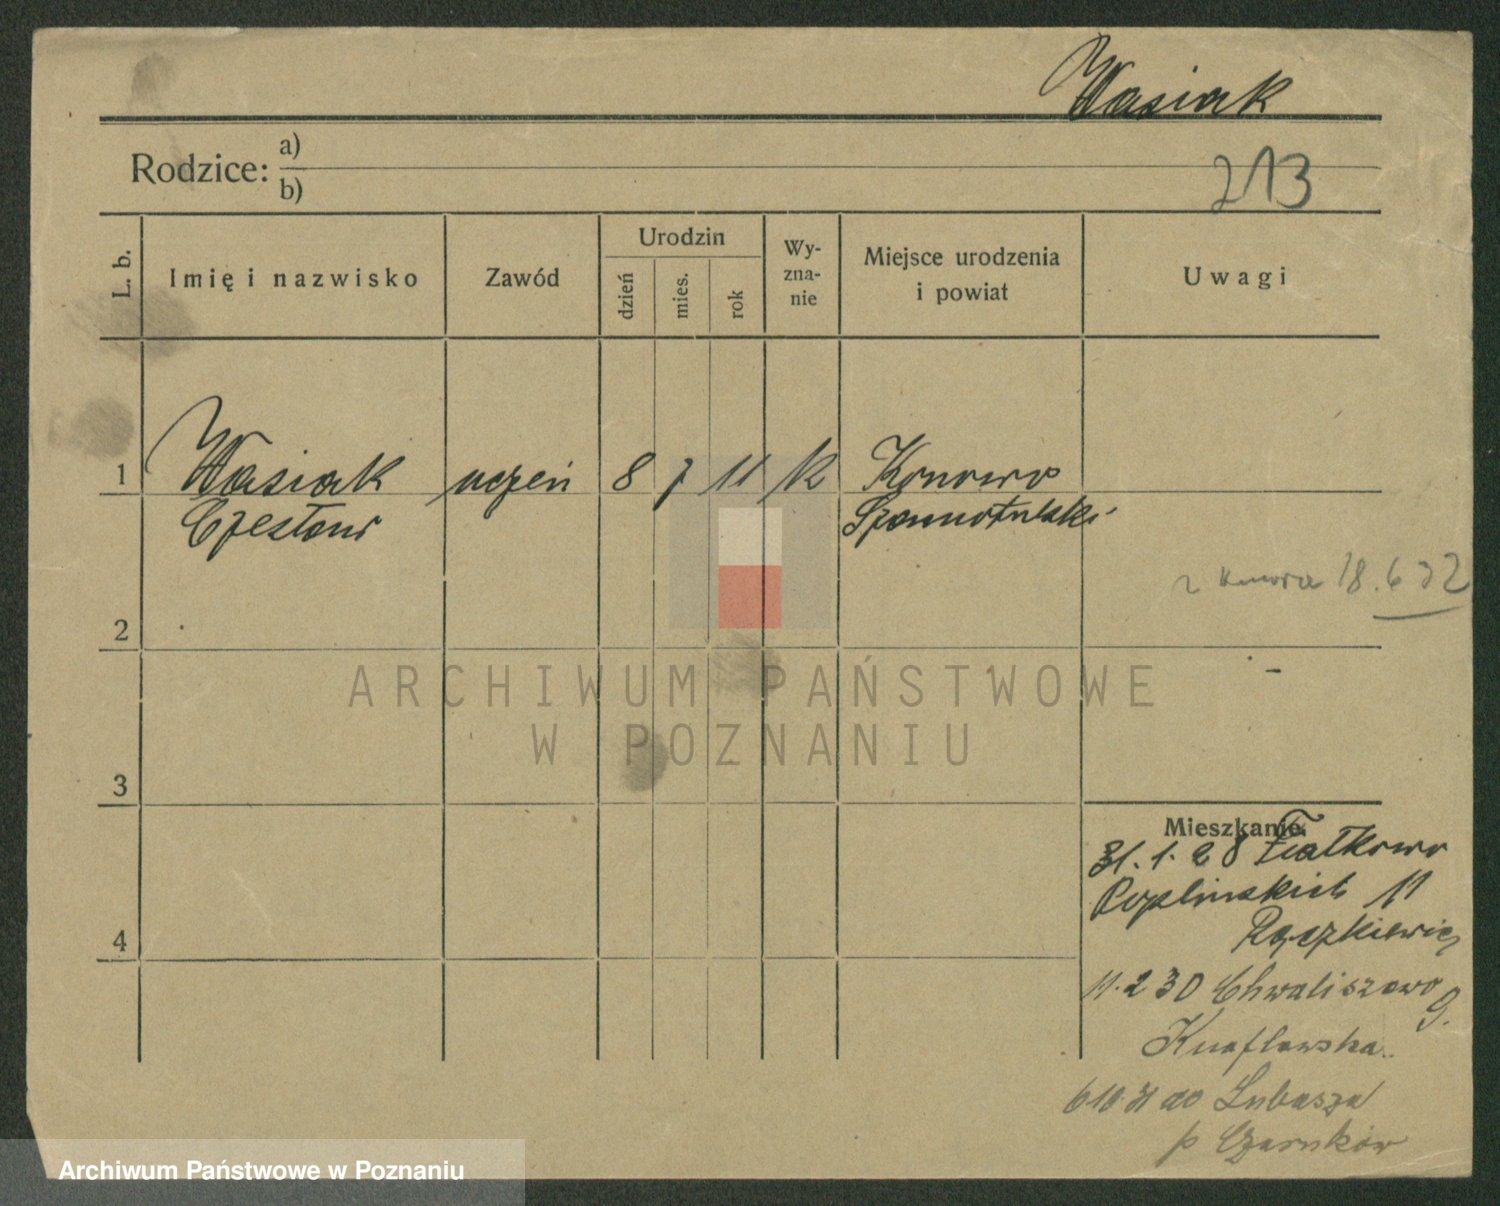 Wasiak
Rodzice: a)
b)
213
L. b.
Imię i nazwisko
Zawód
Urodzin
dzień
mies.
rok
Wy-
zna-
nie
Miejsce urodzenia
i powiat
Uwagi
1
Wasiak uczeń 8 7 11 k Konowo
Czesław Szamotulski
z 18.6 32
2
3
4
Mieszkanie:
31.1.28 Fiałkowo
11
Rączkiewicz
11.2 30 Chwaliszewo
9.
Knaflewska
6.10.31 do Lubasza
p Czarnków
ARCHIWUM PAŃSTWOWE
W POZNANIU
Archiwum Państwowe w Poznaniu